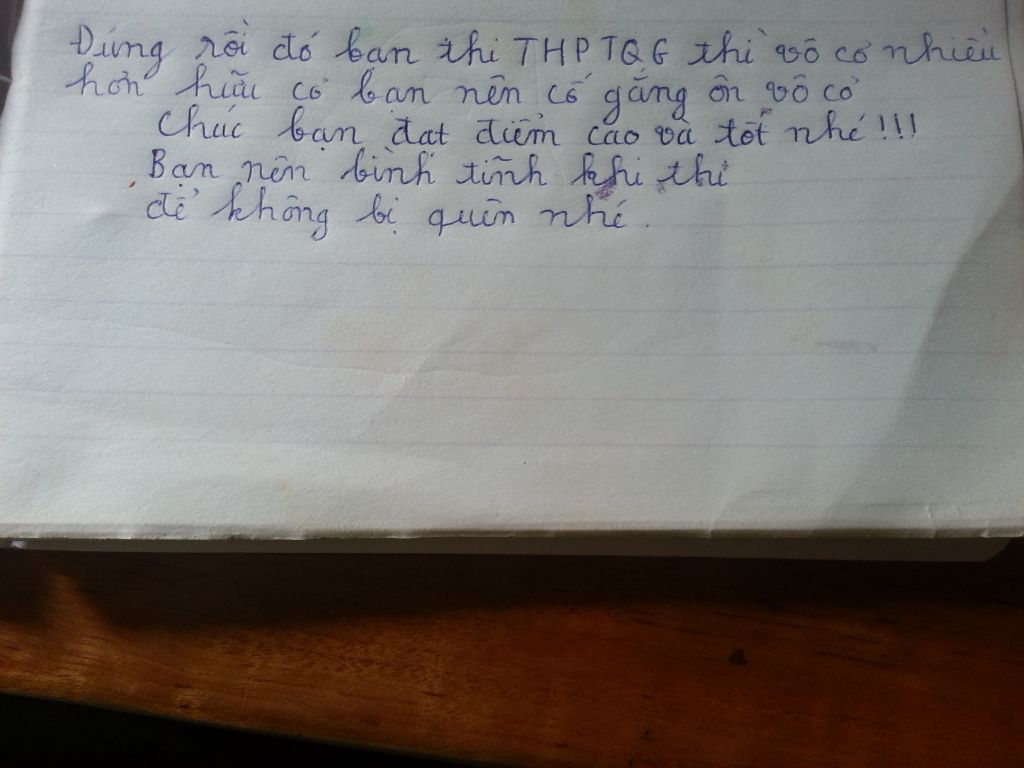 Đúng rồi đó bạn thi THPTQG thì vô cơ nhiều
hơn hữu cơ bạn nên cố gắng ôn vô cơ
Chúc bạn đạt điểm cao và tốt nhé!!!
Bạn nên bình tĩnh khi thi
để không bị quên nhé.